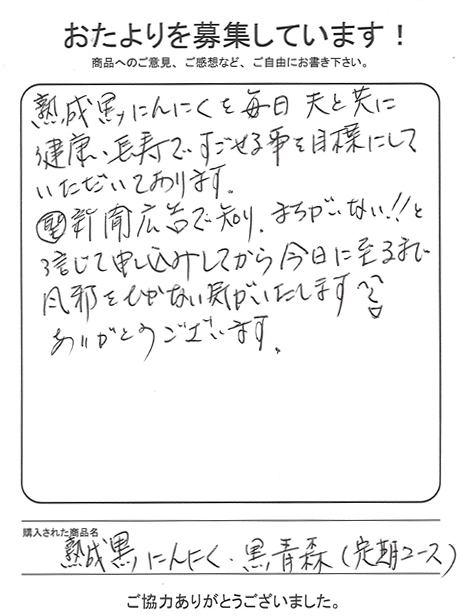 おたよりを募集しています！
商品へのご意見、ご感想など、ご自由にお書き下さい。
熟成黒にんにくを毎日夫と共に
健康、長寿ですごせる事を目標にして
いただいております。
聖新聞広告で知り、まちがいない!!と
信じて申し込みしてから今日に至るまで
風邪をひかない気がいたします
ありがとうございます。
購入された商品名
熟成黒にんにく・黒青森(定期コース)
ご協力ありがとうございました。